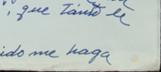 , que tanto le
ido me haga